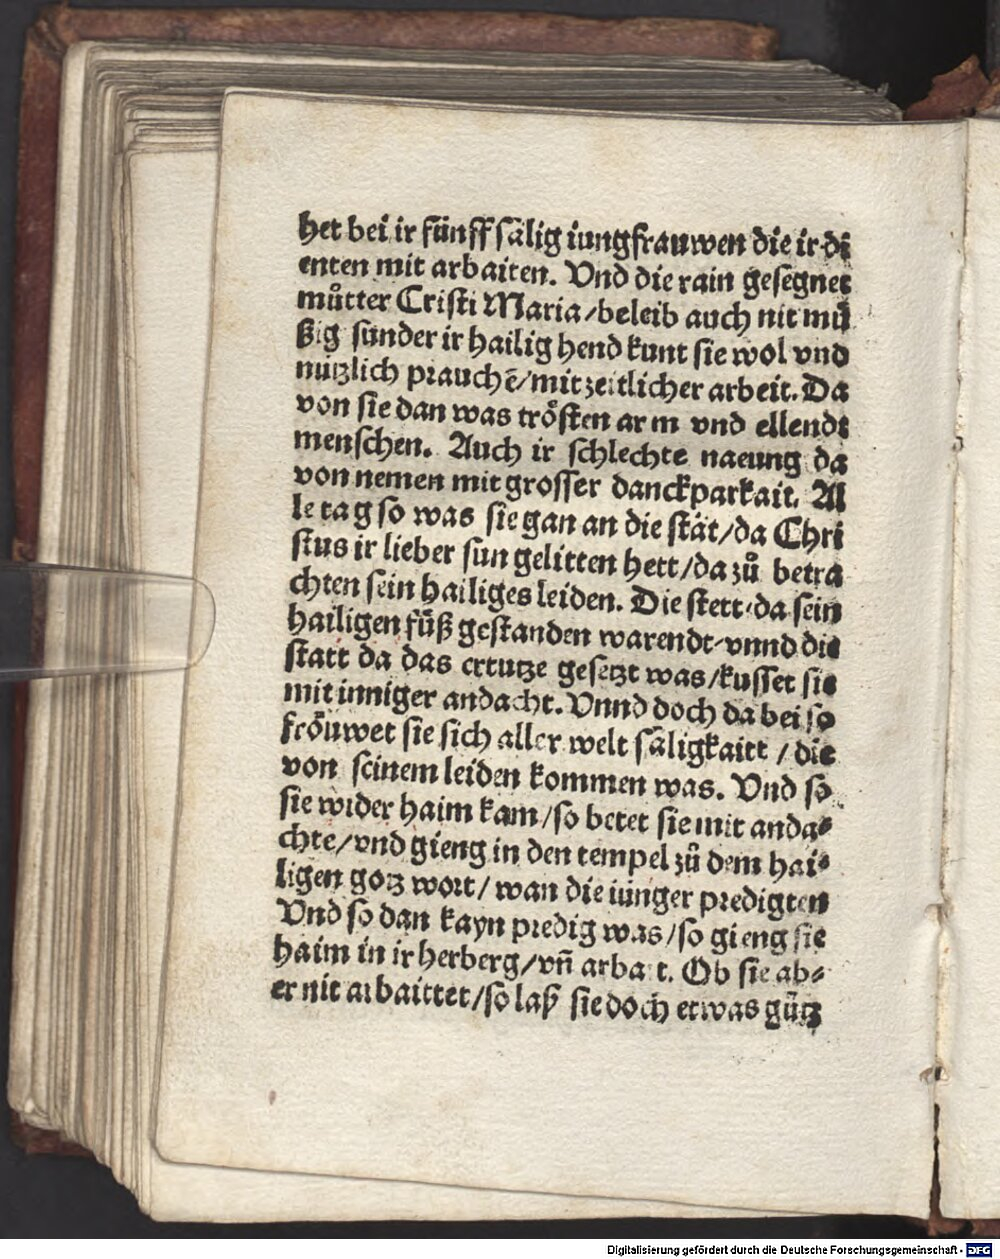 het bei ir fünff sälig iungfrauwen die ir di
enten mit arbaiten. Vnd die rain gesegnet
můtter Cristi Maria/beleib auch nit mů
ßig sunder ir hailig hend kunt sie wol vnd
nützlich prauchē/mit zeitlicher arbeit. Da
von sie dan was trösten arm vnd ellendt
menschen. Auch ir schlechte naeung da
von nemen mit grosser danckparkait. Al
le tag so was sie gan an die stät/da Chri
stus ir lieber sun gelitten hett/da zů betra
chten sein hailiges leiden. Die stett da sein
hailigen füß gestanden warendt vnnd die
statt da das crtutze gesetzt was/kusset sie
mit inniger andacht. Vnnd doch da bei so
fröuwet sie sich aller welt säligkaitt / die
von seinem leiden kommen was. Vnd so
sie wider haim kam/so betet sie mit anda⸗
chte/vnd gieng in den tempel zů dem hai⸗
ligen gotz wort/ wan die iünger predigten
Vnd so dan kayn predig was/so gieng sie
haim in ir herberg/vñ arbait. Ob sie ab⸗
er nit arbaittet/so laß sie doch etwas gůtz
Digitalisierung gefördert durch die Deutsche Forschungsgemeinschaft - DFG